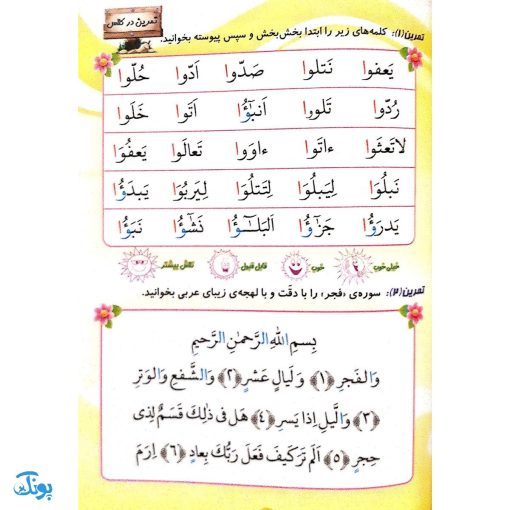 تمرین در کلاس
تمرین(۱): کلمه‌های زیر را ابتدا بخش‌بخش و سپس پیوسته بخوانید.
یَعفوا نَتلوا صَدّوا اَدّوا حُلّوا
رُدّوا تَلوِا اَنبٰٓؤُا اَتَوا خَلَوا
لاتَعثَوا ءاتَوا ءاوَوا تَعالَوا یَعفُوَا
نَبلُوَا لِیَبلُوَا لِتَتلُوَا لِیَربُوَا یَبدَؤُا
یَدرَؤُا جَزٰٓؤُا اَلبَلٰٓـؤُا نَشٰٓؤُا نَبَؤُا
خیلی خوب خوب قابل قبول تلاش بیشتر
تمرین(۲): سوره‌ی «فجر» را با دقّت و با لهجه‌ی زیبای عربی بخوانید.
بِسمِ اللهِ الرَّحمٰنِ الرَّحیمِ
وَالفَجرِ ﴿۱﴾ وَ لَیالٍ عَشرٍ ﴿۲﴾ وَالشَّفعِ وَالوَترِ
﴿۳﴾ وَالَّیلِ اِذا یَسرِ ﴿۴﴾ هَل فی ذٰلِکَ قَسَمٌ لِذی
حِجرٍ ﴿۵﴾ اَلَم تَرَ کَیفَ فَعَلَ رَبُّکَ بِعادٍ ﴿۶﴾ اِرَمَ
پونک